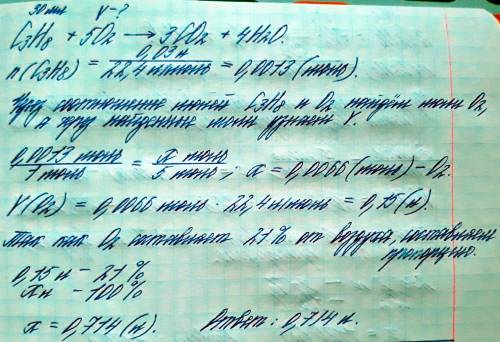 30 мл V - ?
C3H8 + 5O2 → 3CO2 + 4H2O.
n(C3H8) = 0,03 л / 22,4 л/моль = 0,0013 (моль).
Через соотношение молей C3H8 и O2 найдём моли O2,
а через найденные моли узнаем V.
0,0013 моль / 1 моль = x моль / 5 моль ; x = 0,0066 (моль) - O2.
V(O2) = 0,0066 моль · 22,4 л/моль = 0,15 (л).
Так как O2 составляет 21% от воздуха, составляем
пропорцию.
0,15 л - 21 %
x л - 100 %
x = 0,714 (л). Ответ: 0,714 л.